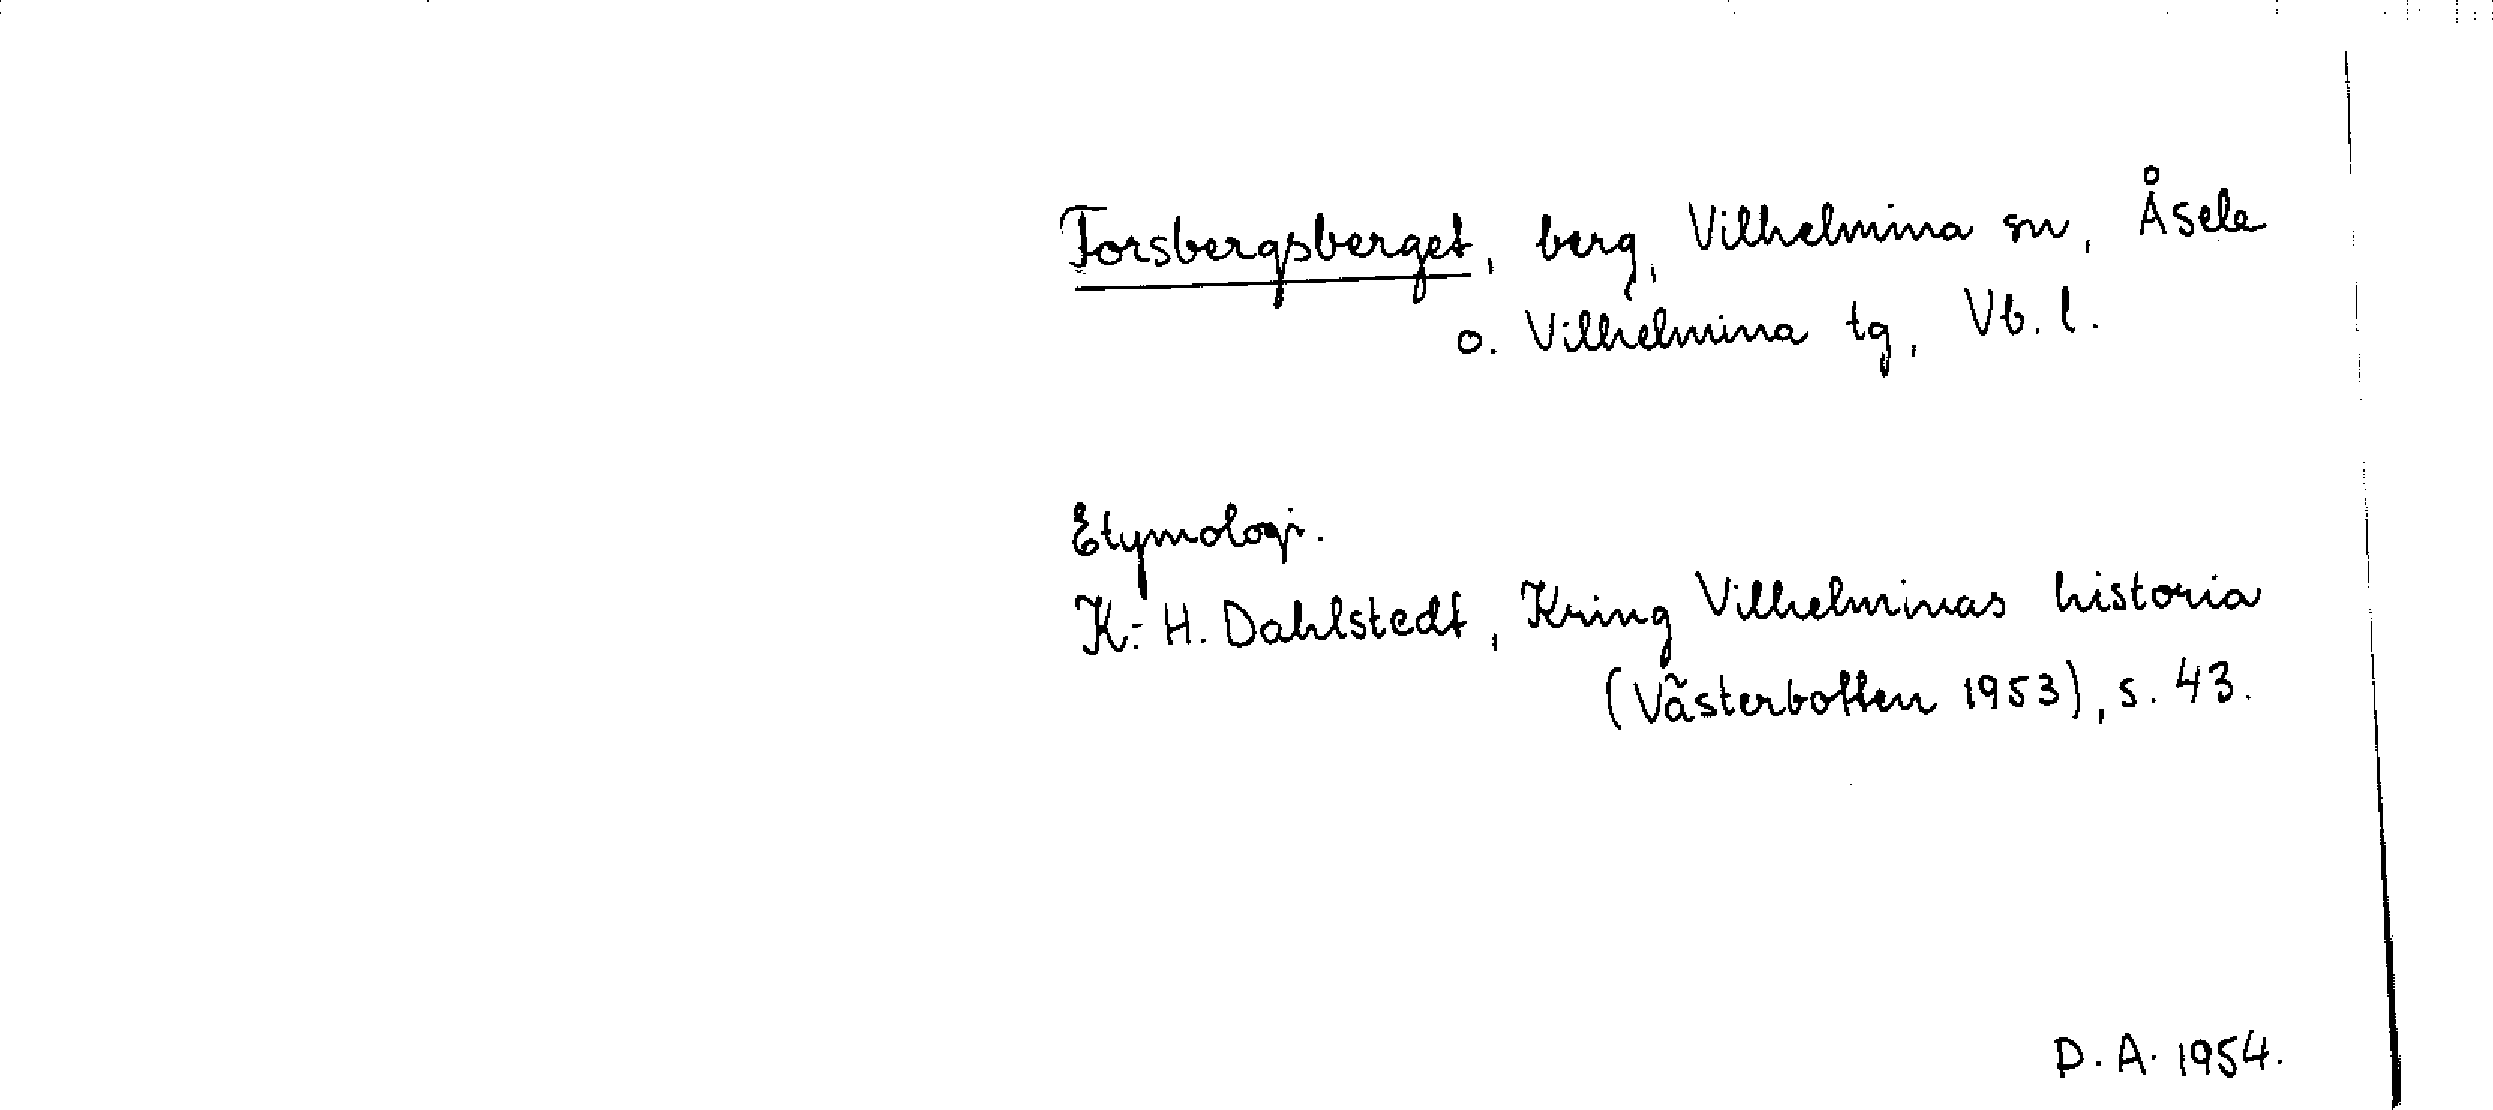 Forsbergsberget, berg, Vilhelmina sn, Åsele
o. Vilhelmina tg, Vb. l.
Etymologi.
K.-H. Dahlstedt, Kring Vilhelminas historia
(Västerbotten 1953), s. 43.
D. A. 1954.